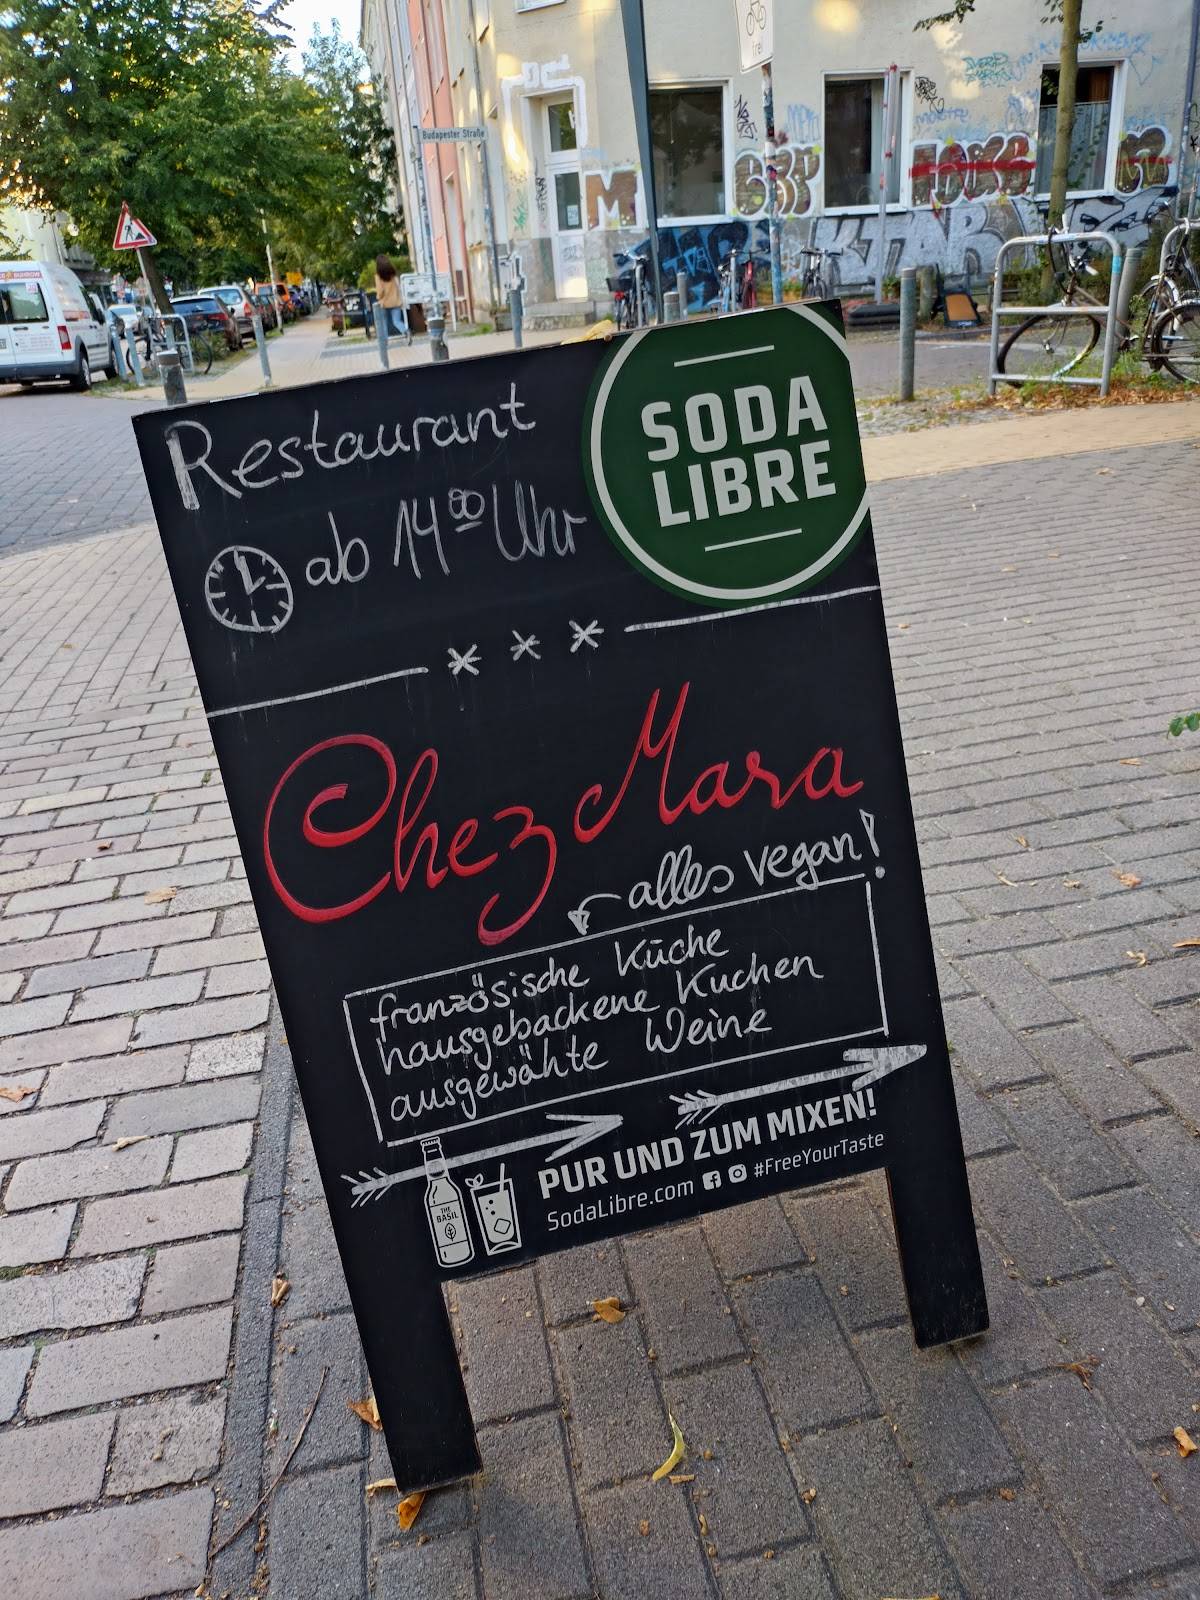 Budapester Straße
frei
Restaurant
ab 14⁰⁰ Uhr
SODA
LIBRE
* * *
Chez Mara
alles vegan!
französische Küche
hausgebackene Kuchen
ausgewählte Weine
THE
BASIL
PUR UND ZUM MIXEN!
SodaLibre.com #FreeYourTaste